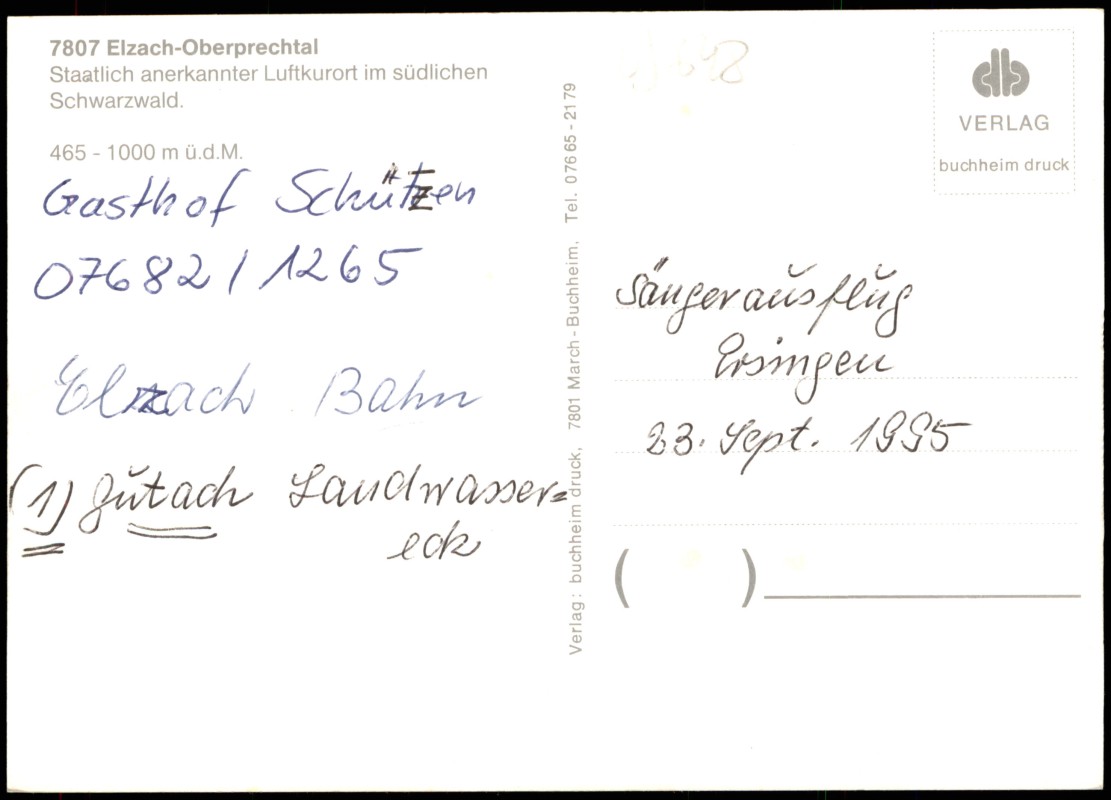 7807 Elzach-Oberprechtal
Staatlich anerkannter Luftkurort im südlichen
Schwarzwald.
465 - 1000 m ü.d.M.
Gasthof Schützen
07682 / 1265
Elzach Bahn
(1) Gutach Landwasser=
eck
Verlag: buchheim druck, 7801 March - Buchheim, Tel. 076 65 - 21 79
VERLAG
buchheim druck
Sängerausflug
Ersingen
23. Sept. 1995
( )